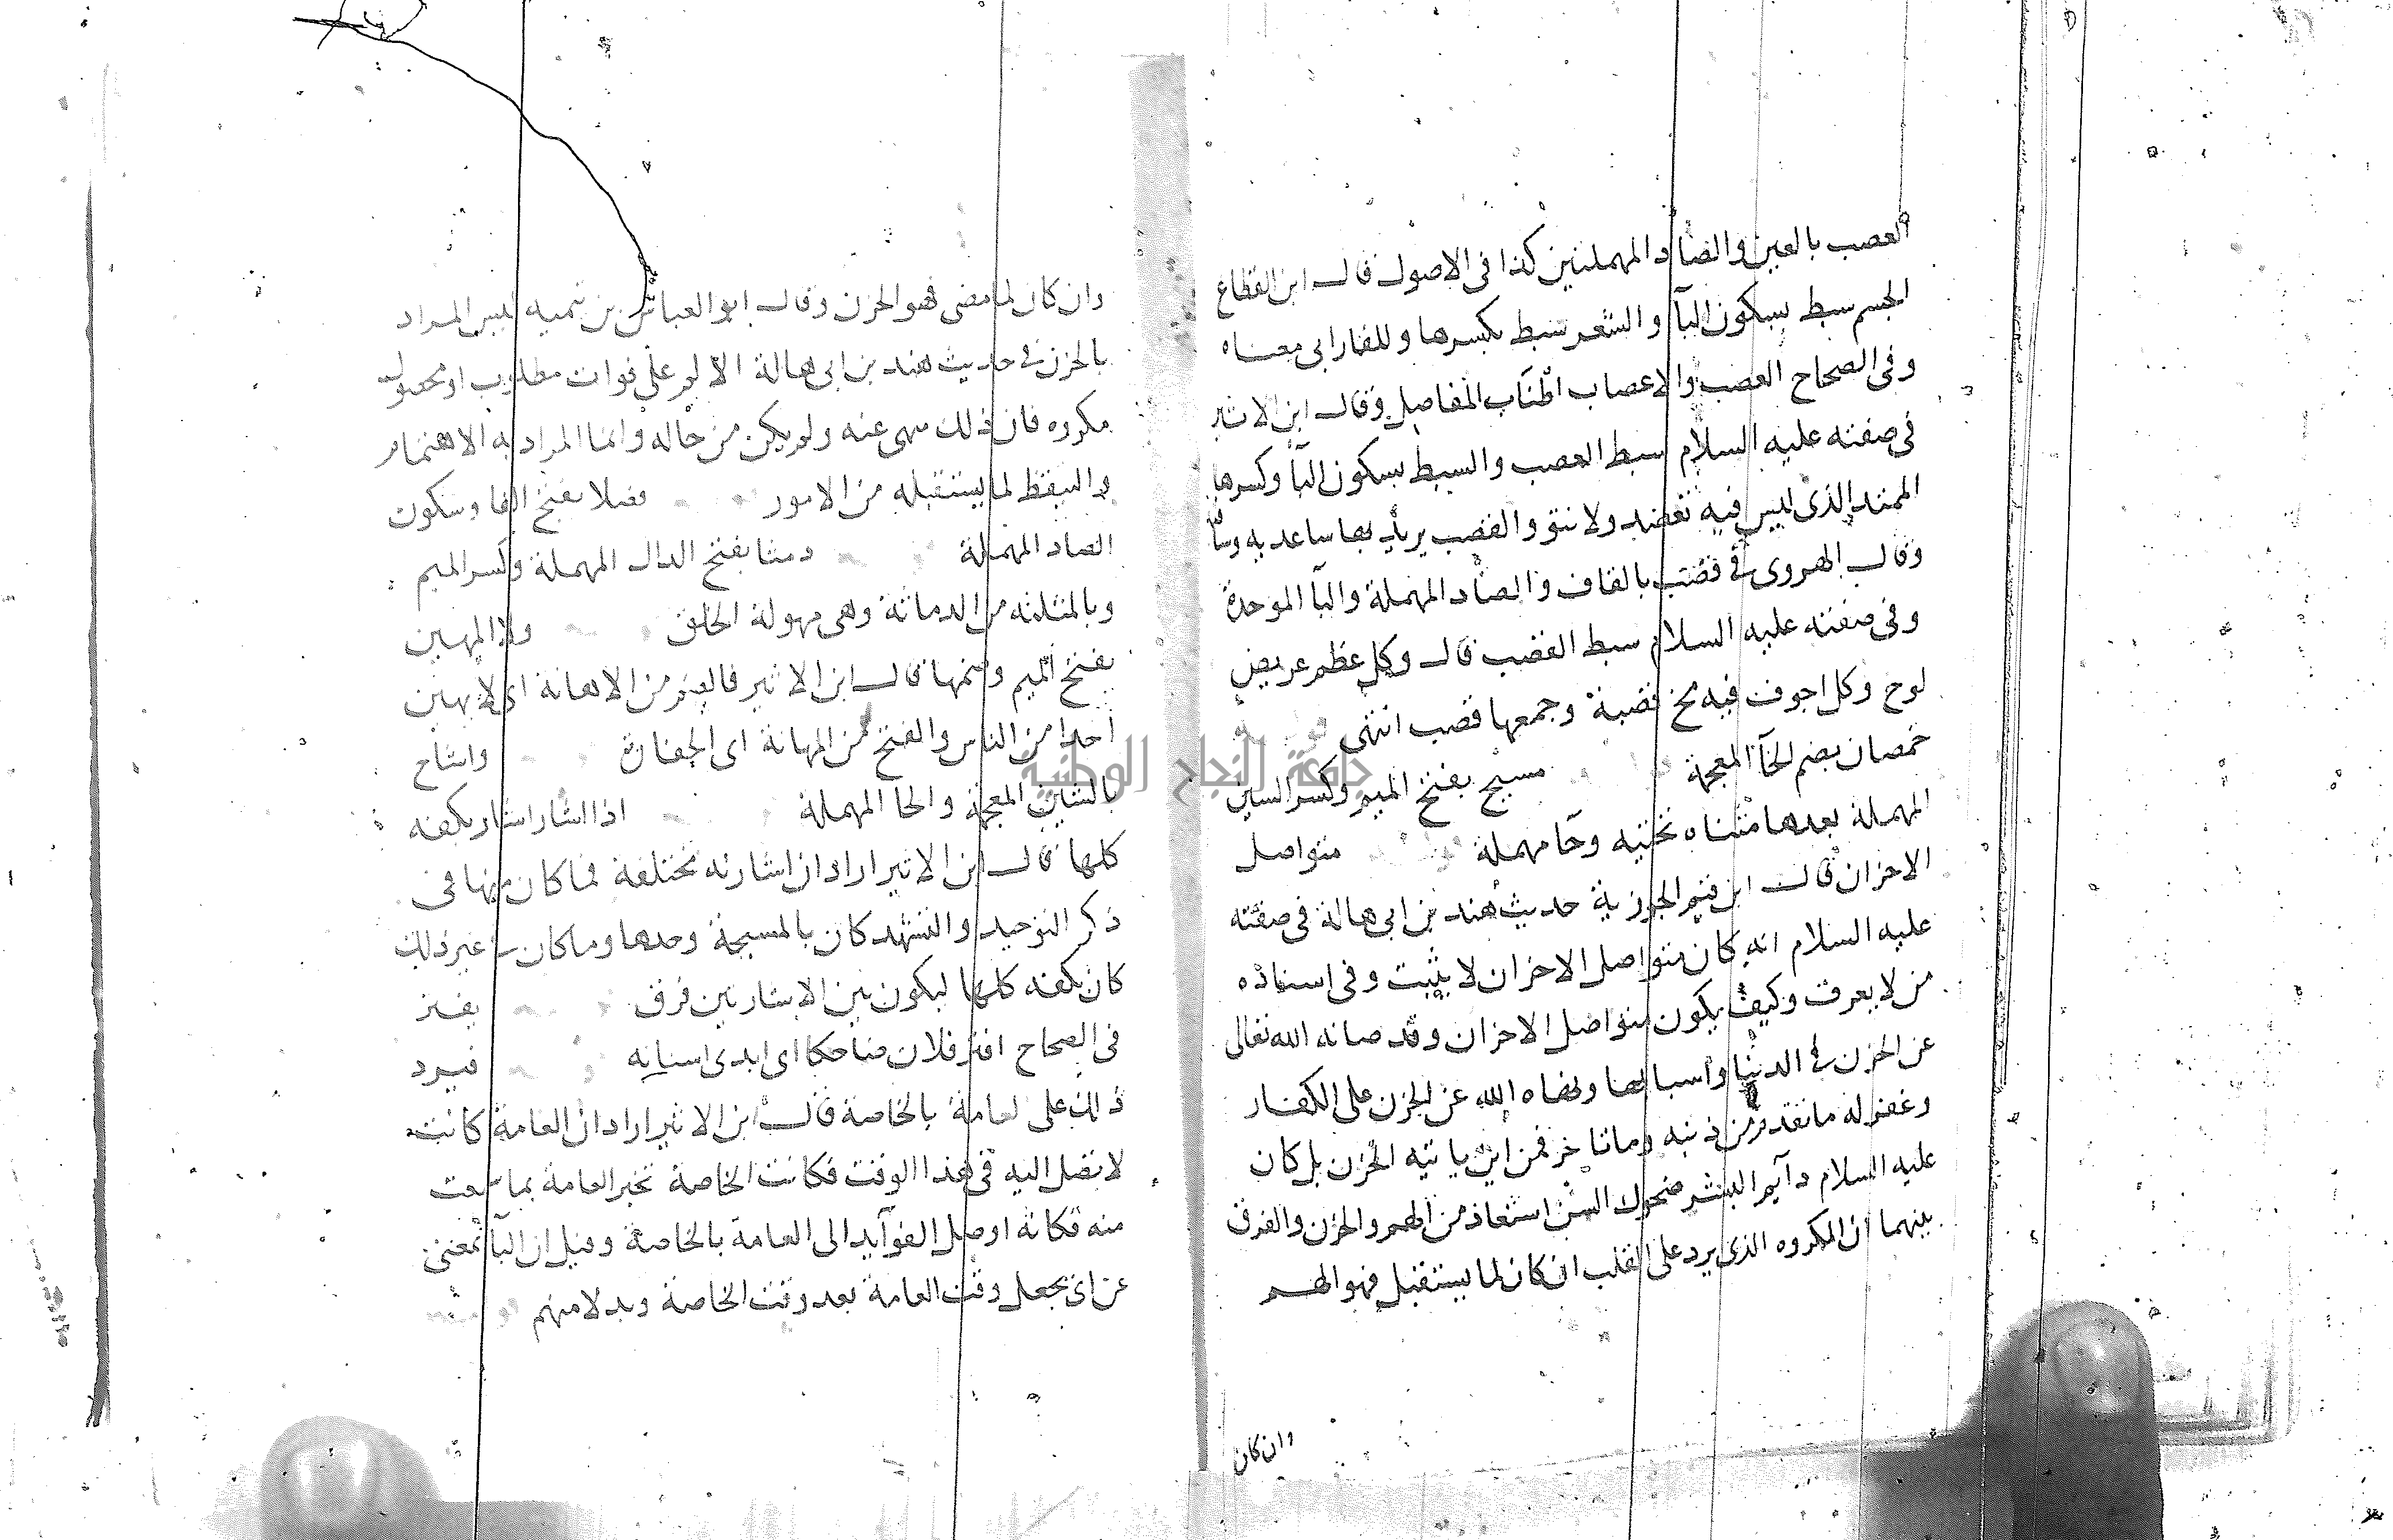 العصب بالعين والصاد المهملتين كذا فى الاصول قال ابن القطاع
الجسم سبط بسكون البآ والشعر سبط بكسرها وللفارابى معناه
وفى الصحاح العصب والاعصاب اطناب المفاصل وقال ابن الاثير
فى صفته عليه السلام سبط العصب والسبط بسكون البآ وكسرها
الممتد الذى ليس فيه تعقد ولا نتو والقصب يريد بها ساعديه وساقيه
وقال الهروى فى قصب بالقاف والصاد المهملة والبآ الموحدة
وفى صفته عليه السلام سبط القصب قال وكل عظم عريض
لوح وكل اجوف فيه مخ قصبة وجمعها قصب انتهى
خمصان بضم الخآ المعجمة مسيح بفتح الميم وكسر السين
المهملة بعدها مثناه تحتيه وحا مهملة متواصل
الاحزان قال ابن قيم الجوزية حديث هند بن ابى هالة فى صفته
عليه السلام انه كان متواصل الاحزان لا يثبت وفى اسناده
من لا يعرف وكيف يكون متواصل الاحزان وقد صانه الله تعالى
عن الحزن فى الدنيا واسبابها ونهاه الله عن الحزن على الكفار
وغفر له ما تقدم من ذنبه وما تاخر فمن اين ياتيه الحزن بل كان
عليه السلام دآيم البشر ضحوك السن استعاذ من الهم والحزن والفرق
بينهما ان المكروه الذى يرد على القلب ان كان لما يستقبل فهو الهم
وان كان
وان كان لما مضى فهو الحزن وقال ابو العباس بن تيميه ليس المراد
بالحزن فى حديث هند بن ابى هالة الالم على فوات مطلوب او حصول
مكروه فان ذلك منهى عنه ولم يكن من حاله وانما المراد به الاهتمام
والتيقظ لما يستقبله من الامور فصلا بفتح الفا وسكون
الصاد المهملة دمثا بفتح الدال المهملة وكسر الميم
وبالمثلثه من الدماثة وهى سهولة الخلق ولا المهين
بفتح الميم وضمها قال ابن الاثير فالضم من الاهانة اى لا يهين
احدا من الناس والفتح من المهانة اى الحقارة واشاح
بالشين المعجمة والحا المهملة اذا اشار اشار بكفه
كلها قال ابن الاثير اراد ان اشارته مختلفة فما كان منها فى
ذكر التوحيد والتشهد كان بالمسبحة وحدها وما كان فى غير ذلك
كان بكفه كلها ليكون بين الاشارتين فرق يفتر
فى الصحاح افتر فلان ضاحكا اى ابدى اسنانه فيرد
ذلك على العامة بالخاصة قال ابن الاثير اراد ان العامة كانت
لا تصل اليه فى هذا الوقت فكانت الخاصة تخبر العامة بما سمعت
منه فكانه اوصل الفوآيد الى العامة بالخاصة وقيل ان البآ بمعنى
عن اى يجعل وقت العامة بعد وقت الخاصة وبدلا منهم
جامعة النجاح الوطنية